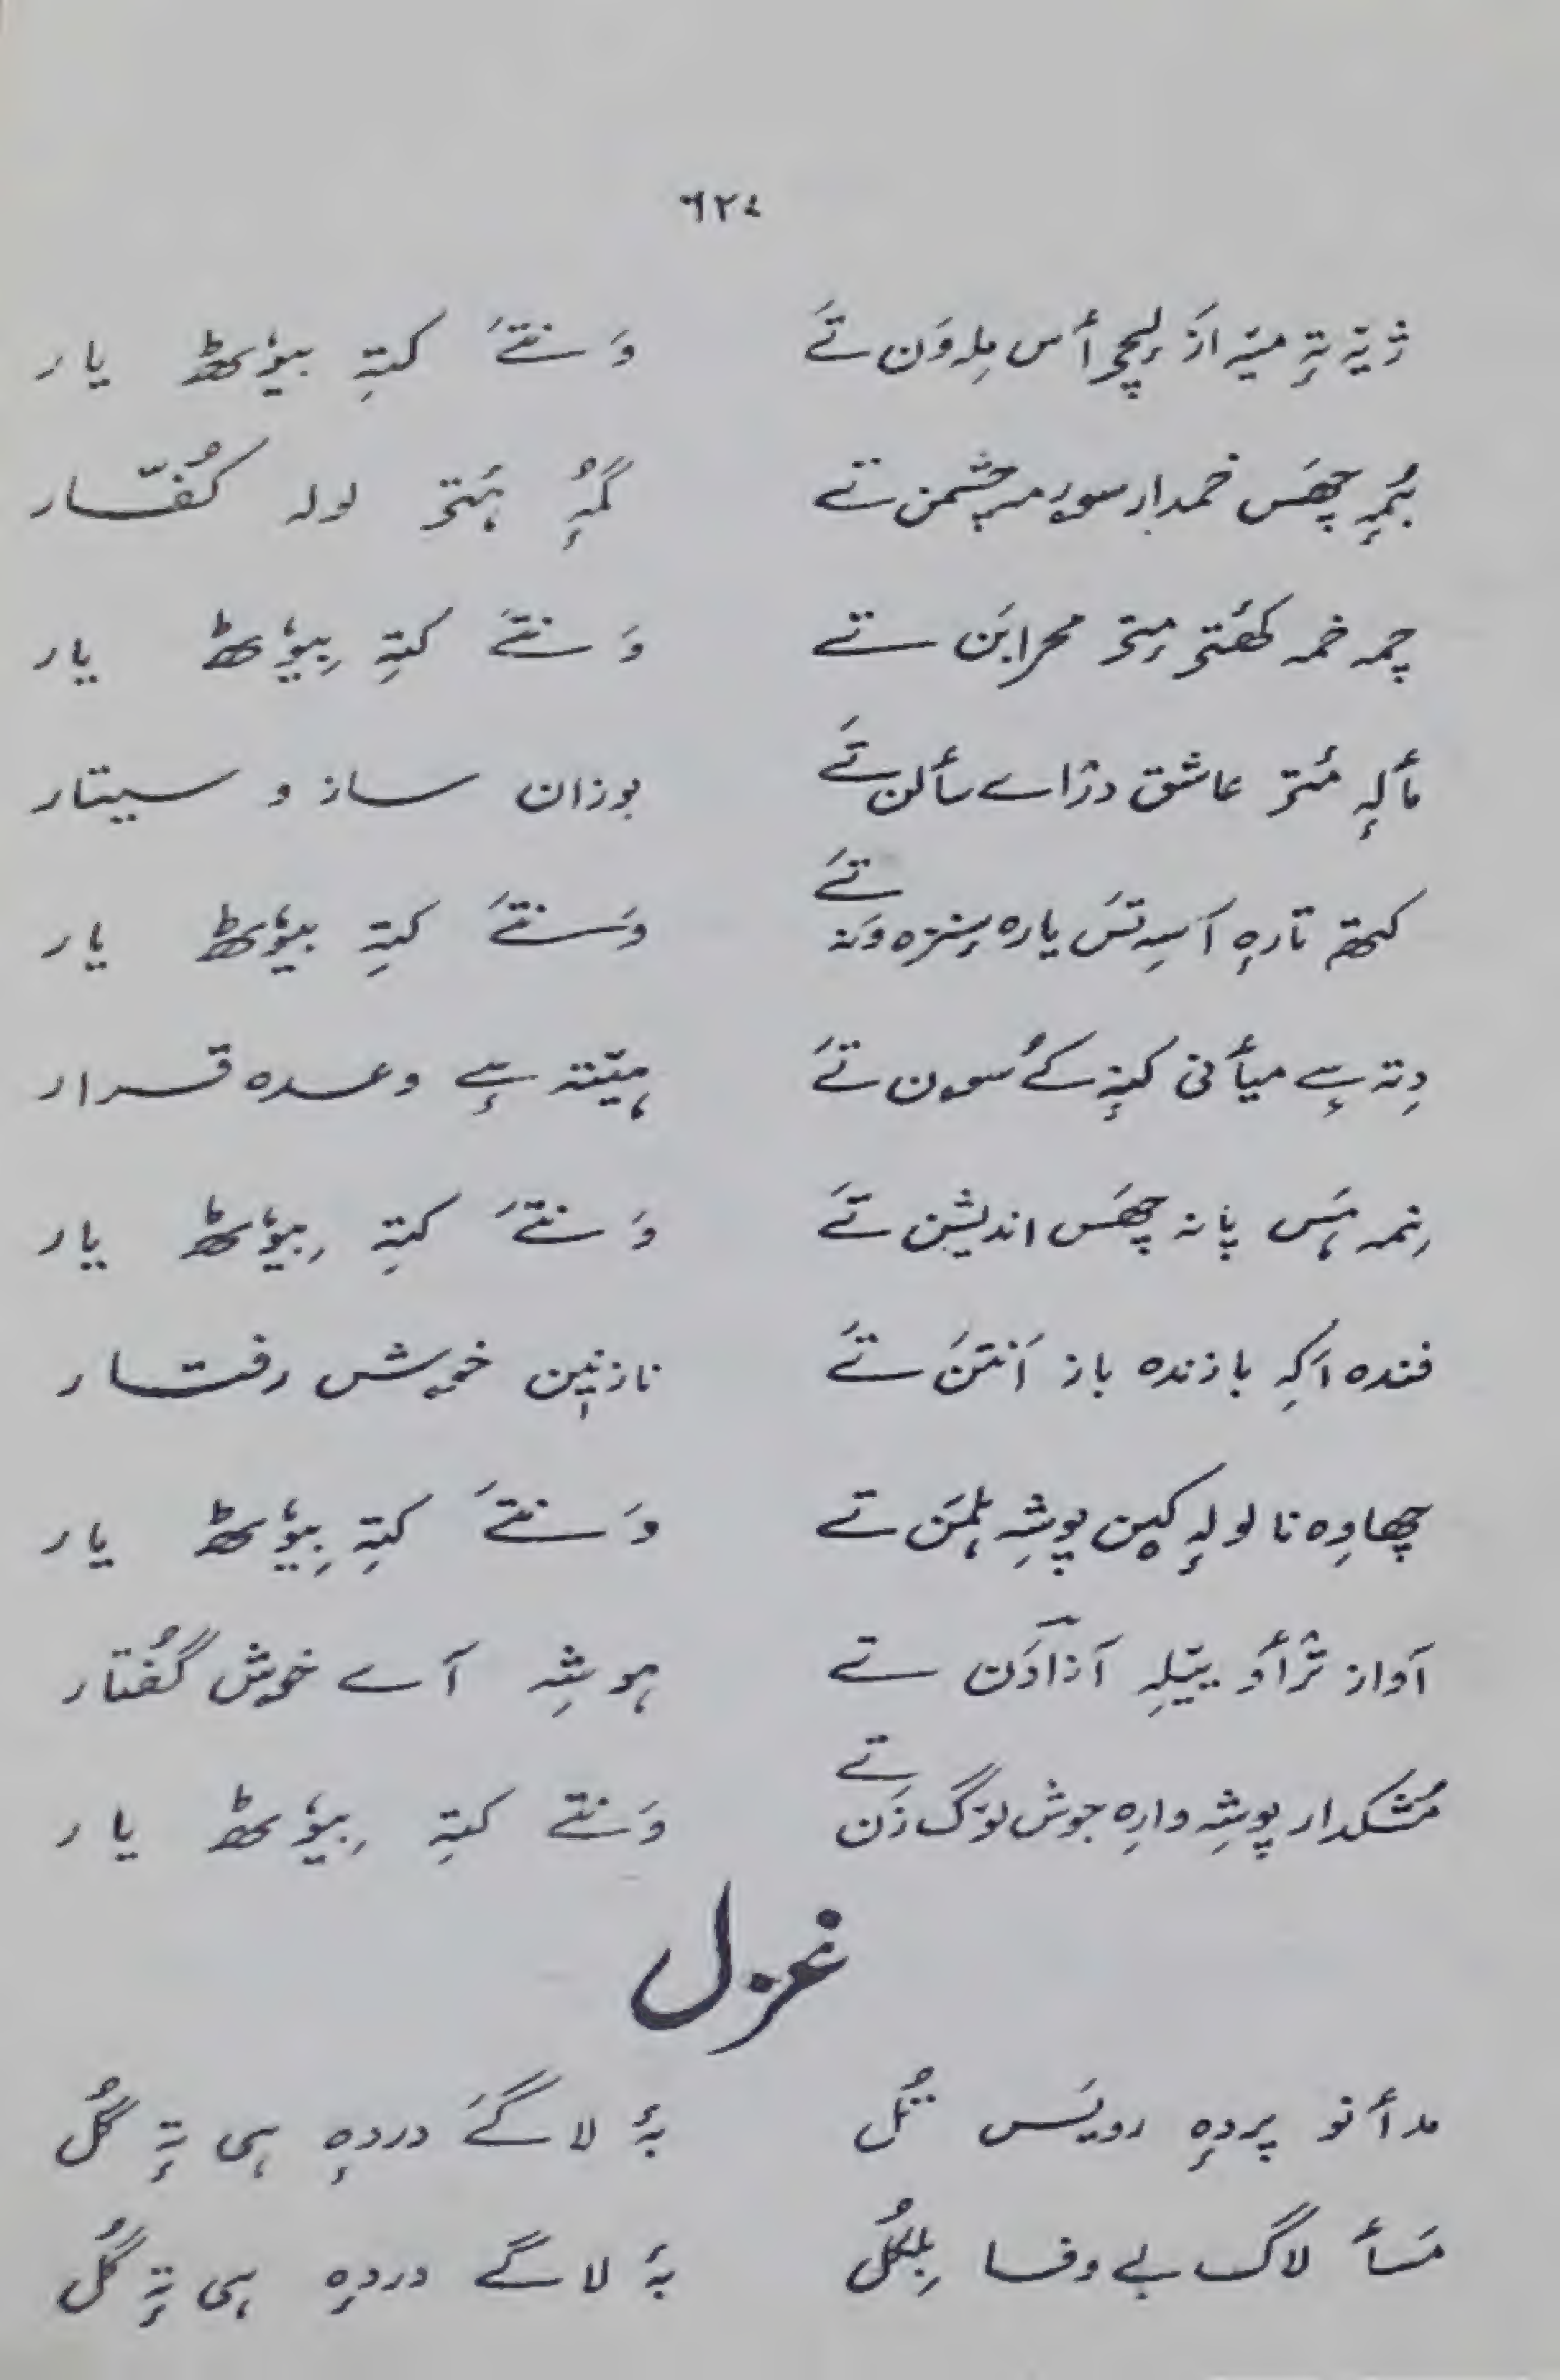 ٦٢٤
ژیٚتہٕ تہٕ میٚہ از لیچُو أس مِلہ وَن تَے وَنتَے کتہِ بیوٗٹھ یار
بُمہٕ چھَس خمدار سورمہ چشمن تے گَمہٕ ۂتۍ لولہ کُفّار
چمہ خمہ کھٔتۍ مِتۍ محرابَن تے وَنتَے کتہِ بیوٗٹھ یار
مألہٕ مٔتۍ عاشق دراے سألن تَے بوزان ساز و سیتار
کیتھ تارہٕ آسہِ تَس یارہ سٕنزہ وَنہ تَے وَنتَے کتہِ بیوٗٹھ یار
دِتہ سٕے میأنی کَنہٕ کے سون تَے ہیٚتہ سٕے وعدہ قرار
نِمہ ہَس پانہ چھَس اندیشن تَے وَنتَے کتہِ بیوٗٹھ یار
فندہ اَکہِ بازندہ باز اَنتَن تَے نازنین خوش رفتار
چھاوِہ نا لولہٕ کین پوشہِ ہلمَن تے وَنتَے کتہِ بیوٗٹھ یار
آواز ترأو یتیلہِ آزاوَن تے ہوشہِ آے خوش گُفتار
مُشکدار پوشہِ وارِہ جوش لوٚگ زَن تے وَنتے کتہِ بیوٗٹھ یار
غزل
مدأنو پردہٕ رویَس تُل بۂ لاگَے دردہٕ ہی تہٕ گُل
مَسأ لاگ بے وفا بِلکُل بۂ لاگے دردہٕ ہی تہٕ گُل